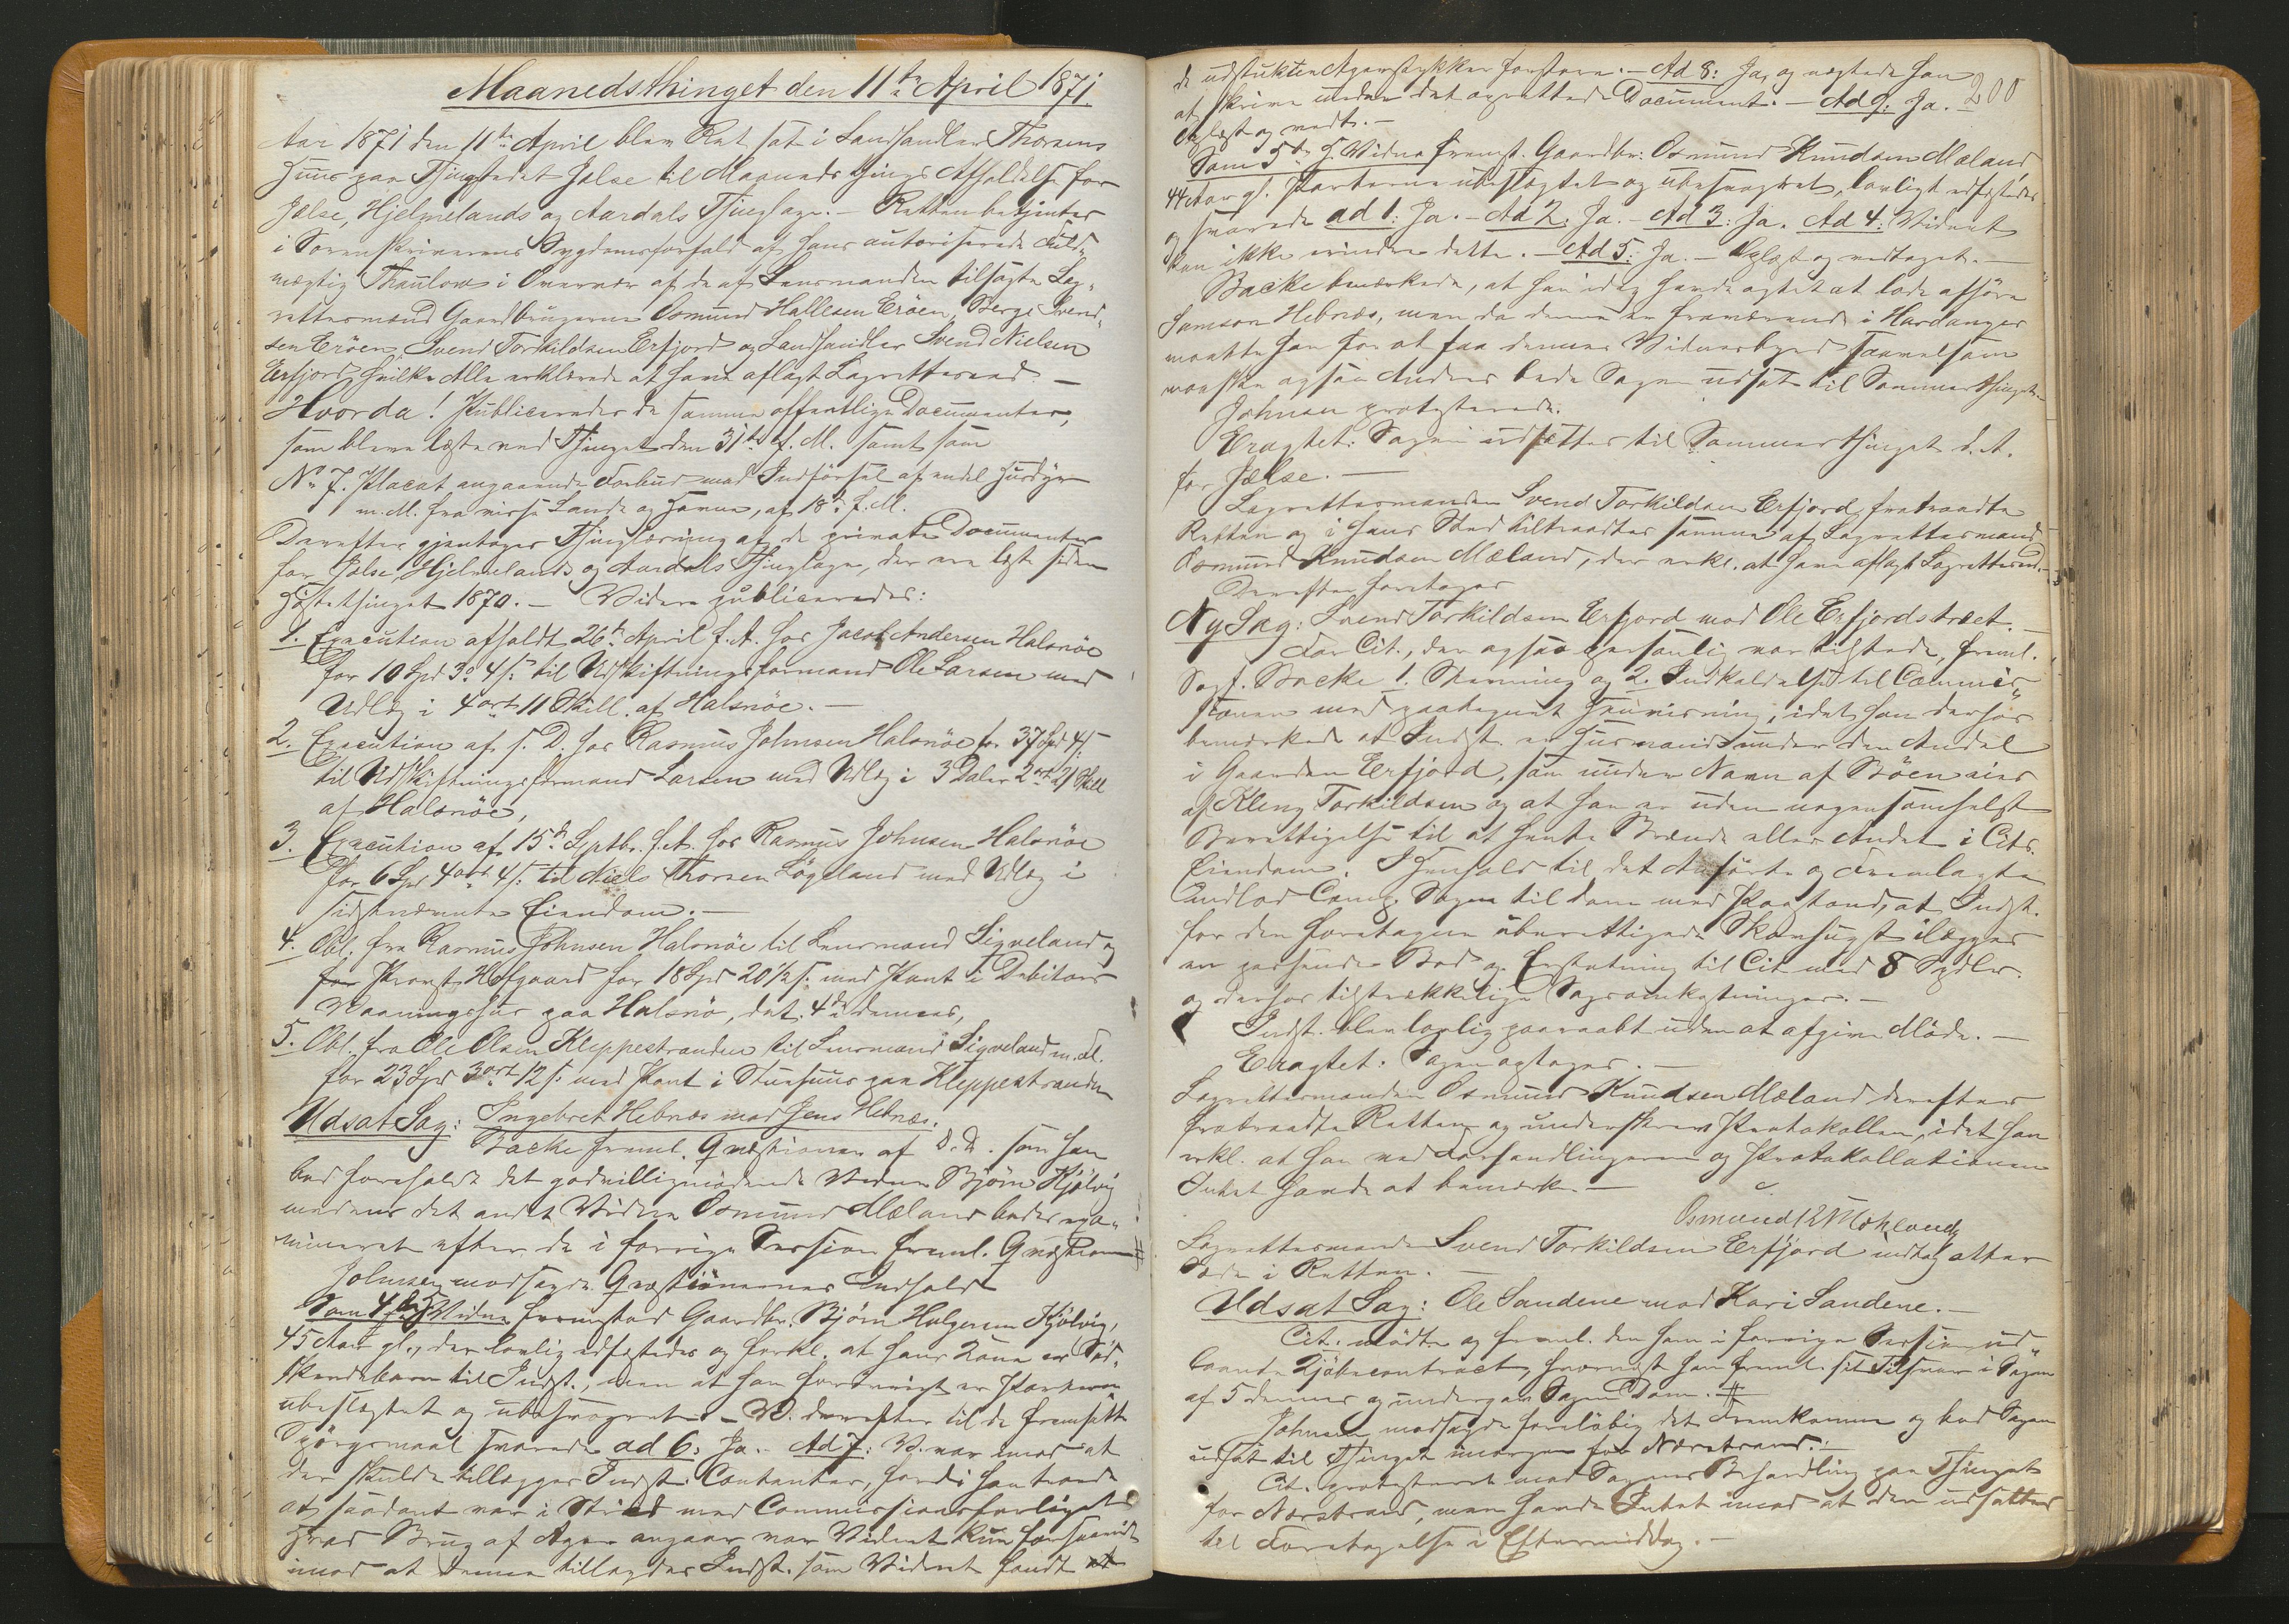 Maanedsthinget den 11te April 1871.
Aar 1871 den 11te April blev Ret sat i Landhandler Thorsens
Huus paa Thingstedet Jelse til Maanedsthings Afholdelse for
Jelse, Hjelmelands og Aardals Thinglage. – Retten betjentes
i Sorenskriverens Sygdomsforfald af hans autoriserede Fuld-
mægtig Thaulow i Overvær af de af Lensmanden tilsagte Lag-
rettesmænd Gaardbrugerne Osmund Hallesen Eröen, Berge Svend-
sen Eröen, Svend Torkildsen Erfjord og Landhandler Svend Nielsen
Erfjord, hvilke Alle erklærede at have aflagt Lagretteseed. –
Hvorda! Publiceredes de samme offentlige Documenter,
som bleve læste ved Thinget den 31te f. M. samt som
No 7. Placat angaaende Forbud mod Indförsel af endel Huusdyr
m. M. fra visse Lande og Havne, af 18de f. M.
Derefter gjentoges Thinglæsning af de private Documenter
for Jelse, Hjelmelands og Aardals Thinglage, der ere læste siden
Höstethinget 1870. – Videre publiceredes:
1. Execution afholdt 26de April f. A. hos Jacob Andersen Halsnöe
for 10 Spd 3o 4 s. til Udskiftningsformand Ole Larsen med
Udlæg i 4 ort 11 Skill. af Halsnöe. –
2. Execution af s. D. hos Rasmus Johnsen Halsnöe for 37 Spd 4 s.
til Udskiftningsformand Larsen med Udlæg i 3 Daler 2 ort 21 Skill
af Halsnöe,
3. Execution af 15de Septbr. f. A. hos Rasmus Johnsen Halsnöe
for 6 Spd 4 ort 4 s. til Niels Thorsen Lögeland med Udlæg i
sidstnævnte Eiendom. –
4. Obl. fra Rasmus Johnsen Halsnöe til Lensmand Sigveland og
for Provst Hofgaard for 18 Spd 20 1/2 s. med Pant i Debitors
Vaaningshus paa Halsnö, dat. 4de dennes,
5. Obl. fra Ole Olsen Kleppestranden til Lensmand Sigveland m. fl.
for 23 Spd 3 ort 12 s. med Pant i Stuehuus paa Kleppestranden
Udsat Sag: Ingebret Hebnæs mod Jens Hebnæs.
Backe freml. Qvæstioner af D. D. som han
bad foreholdt det godvilligmödende Vidne Björn Kjölvig
medens det andet Vidne Osmund Mæland bedes exa-
mineret efter de i forrige Session freml. Qvæstioner #
Johnsen modsagde Qvæstionernes Indhold
Som 4de Vidne fremstod Gaardbr. Björn Holgersen Kjölvig,
45 Aar gl., der lovlig edfæstedes og forkl. at hans Kone er Söd-
skendebarn til Indst., men at han forövrigt er Parterne
ubeslægtet og ubesvogret. – V. derefter til de fremsatte
Spörgsmaal svarede ad 6: Ja. – Ad 7: V. var med at
der skulde tillægges Indst. Contanter, fordi han troede
at saadant var i Strid med Commissionsforliget
Hvad Brug af Ager angaaer var Vidnet kun forsaavidt
imod at denne tillagdes Indst. som Vidnet fandt at
200
de udstukte Agerstykker forstore. – Ad 8: Ja, og nægtede han
at skrive under det oprettede Document. – Ad 9: Ja.
Oplæst og vedt. –
Som 5te Vidne fremst. Gaardbr. Osmund Knudsen Mæland
44 Aar gl. Parterne ubeslægtet og ubesvogret, lovligt edfæstedes
og svarede ad 1: Ja. – Ad 2: Ja. – Ad 3: Ja. Ad 4: Vidnet
kan ikke erindre dette. – Ad 5: Ja. – Oplæst og vedtaget. –
Backe bemærkede, at han idag havde agtet at lade afhöre
Samson Hebnæs, men da denne er fraværende i Hardanger
maatte han for at faae dennes Vidnesbyrd saavelsom
maaske ogsaa Andres bede Sagen udsat til Sommerthinget. –
Johnsen protesterede.
Eragtet: Sagen udsættes til Sommerthinget d. A.
for Jelse. –
Lagrettesmanden Svend Torkildsen Erfjord fratraadte
Retten og i hans Sted tiltraadtes samme af Lagrettesmand
Osmund Knudsen Mæland, der erkl. at have aflagt Lagretteseed. –
Derefter foretoges
Ny Sag: Svend Torkildsen Erfjord mod Ole Erfjordstræet. –
For Cit., der ogsaa personlig var tilstede, freml.
Sagf. Backe 1. Stævning og 2. Indkaldelse til Commis-
sionen med paategnet Henviisning, idet han derhos
bemærkede at Indst. er Huusmand under den Andel
i Gaarden Erfjord, som under Navn af Böen eies
af Kleng Torkildsen og at han er uden nogensomhelst
Berettigelse til at hente Brænde eller Andet i Cits.
Eiendom. I Henhold til det Anförte og Fremlagte
indlod Comp. Sagen til Dom med Paastand, at Indst.
for den foretagne uberettigede Skovhugst ilægges
en passende Bod og Erstatning til Cit. med 8 Spdlr.
og derhos tilstrækkelige Sagsomkostninger. –
Indst. blev lovlig paaraabt uden at afgive Möde. –
Eragtet: Sagen optages. –
Lagrettesmanden Osmund Knudsen Mæland derefter
fratraadte Retten og underskrev Protokollen, idet han
erkl. at han ved Forhandlingerne og Protokollationen
Intet havde at bemærke. –
Osmund K Mæhland
Lagrettesmanden Svend Torkildsen Erfjord indtog atter
Sæde i Retten. –
Udsat Sag: Ole Sandene mod Kari Sandene. –
Cit. mödte og freml. den ham i forrige Session ud-
laante Kjöbecontract, hvornæst han freml. sit Tilsvar i Sagen
af 5 dennes og undergav Sagen Dom. #
Johnsen modsagde foreløbig det Fremkomne og bad Sagen
udsat til Thinget imorgen for Nærstrand. –
Cit. protesterede mod Sagens Behandling paa Thinget
for Nærstrand, men havde Intet imod at den udsættes
til Foretagelse i Eftermiddag. –